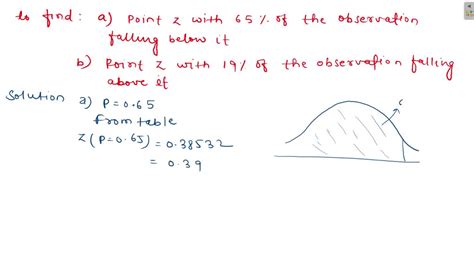 to find : a) Point z with 65% of the observation
falling below it
b) Point z with 19% of the observation falling
above it
Solution a) P = 0.65
from table
z ( P = 0.65) = 0.38532
= 0.39